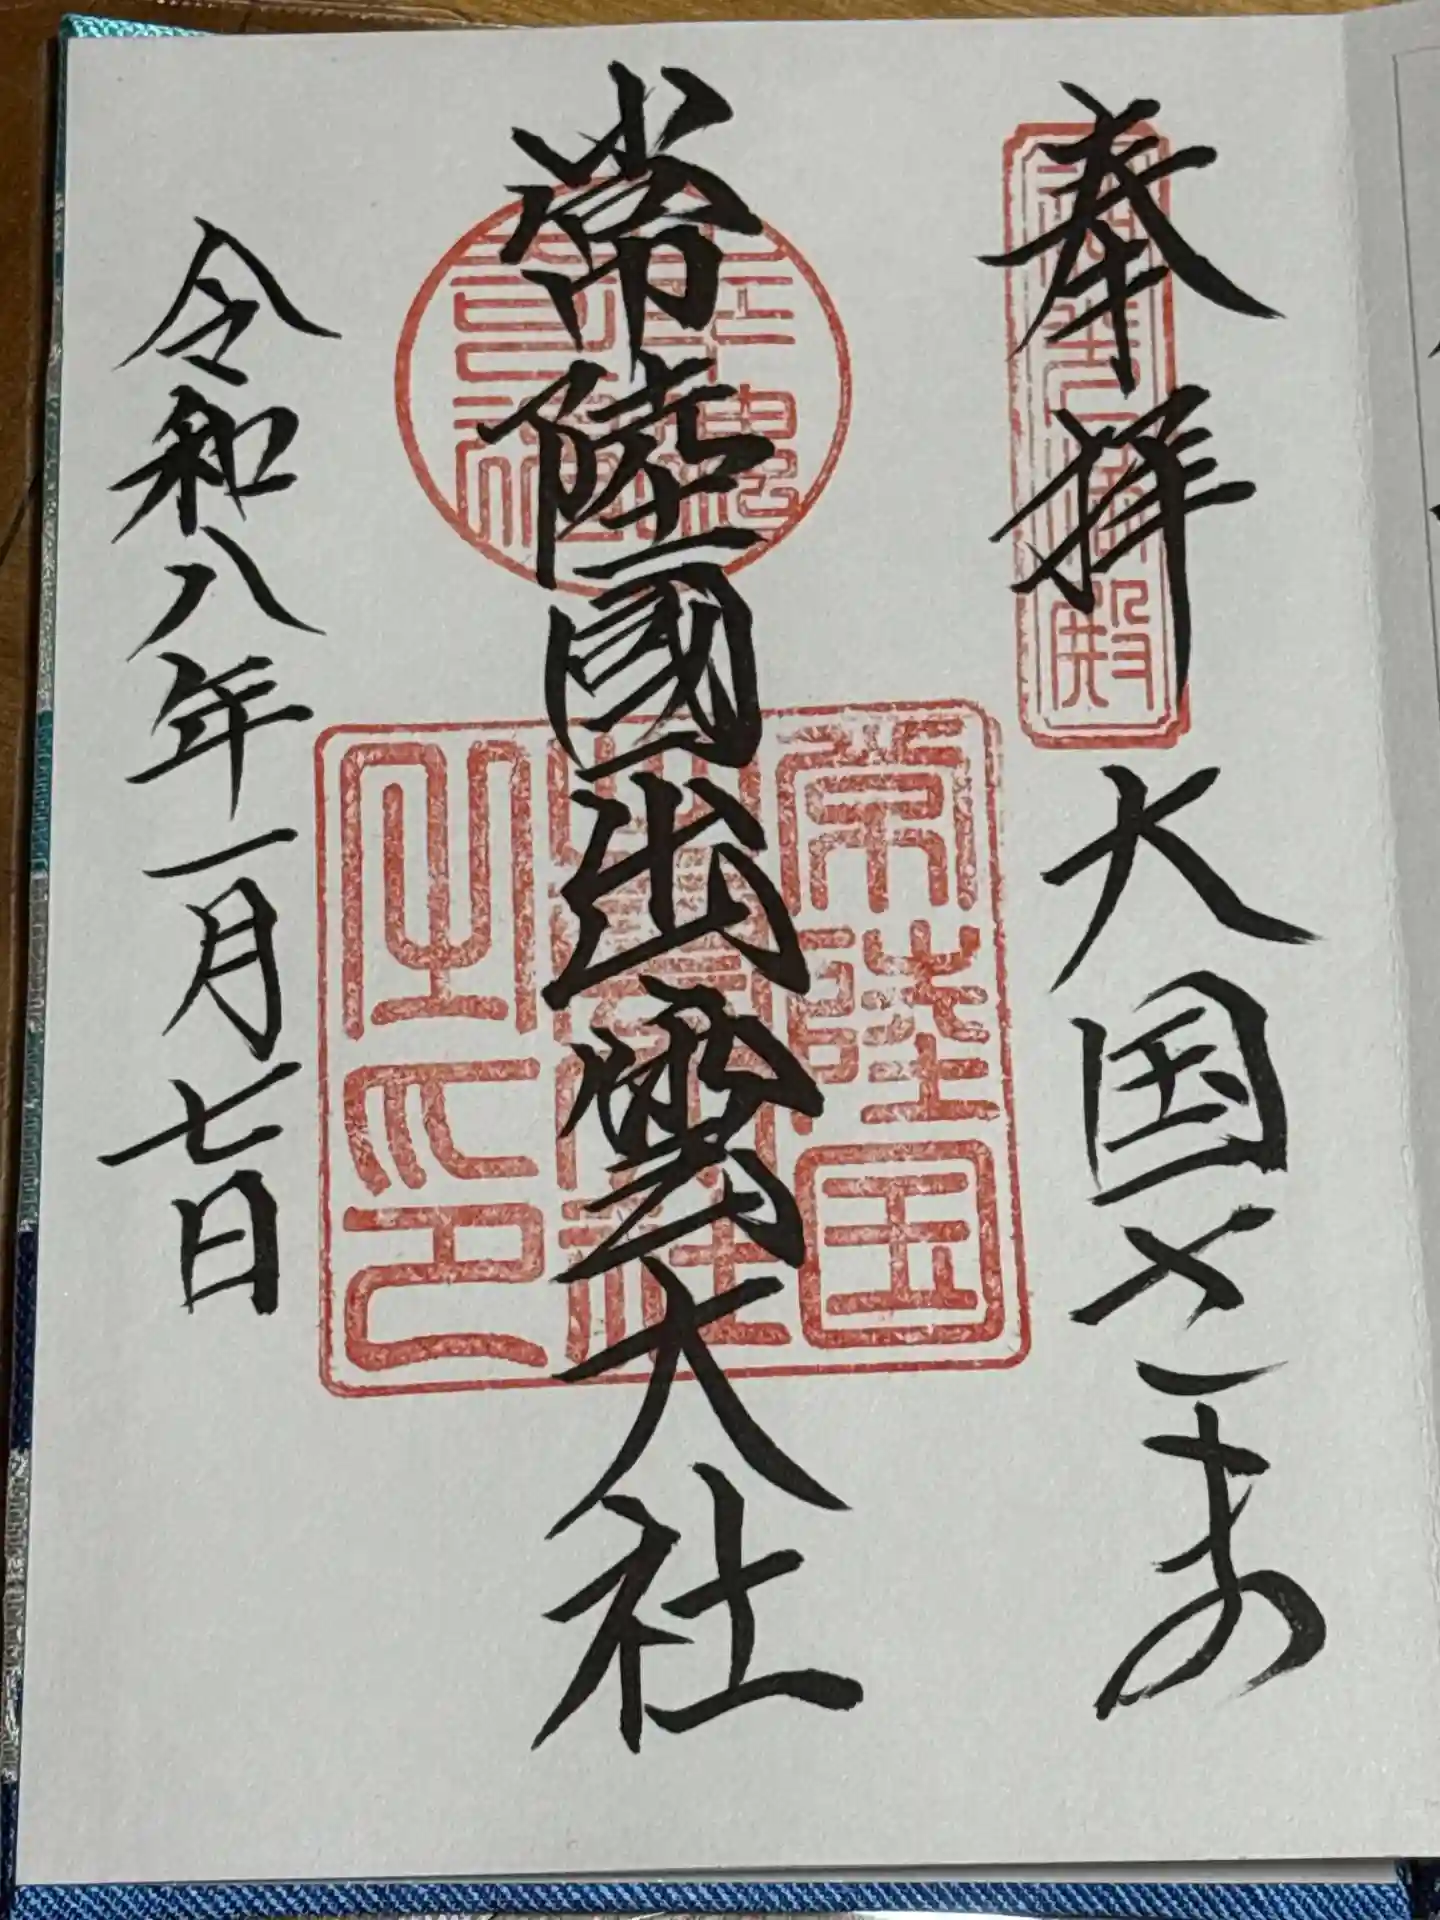 奉拝 大国さま
常陸國出雲大社
令和八年一月七日
常陸国
之印